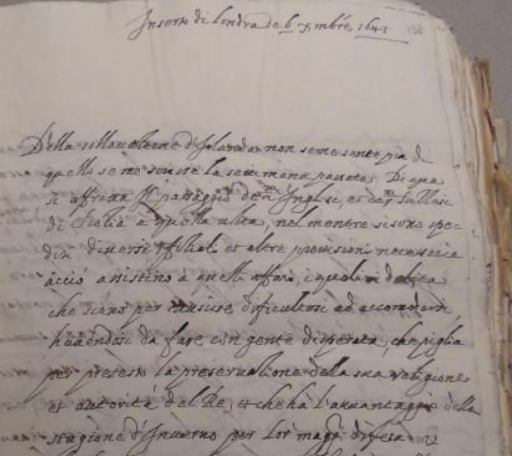 Inserto di londra de 6 xmbre 1641
Della sollevatione d'Irlanda non se ne sente più di
quello se ne scrisse la settimana passata. Di qua
si affretta il passaggio d'Inglesi, et
di Scotia a quella volta, nel mentre si sono spe-
diti diversi offitiali et altre provisioni necessarie
acciò assistino à quelli affari, i quali si dubita
che siano per riuscire difficultosi ad accomodarsi,
havendosi da fare con gente disperata, che piglia
per pretesto la preservatione della sua religione
et autorità del Re, et che hà l'avvantaggio della
stagione d'Inverno per lor magr difesa